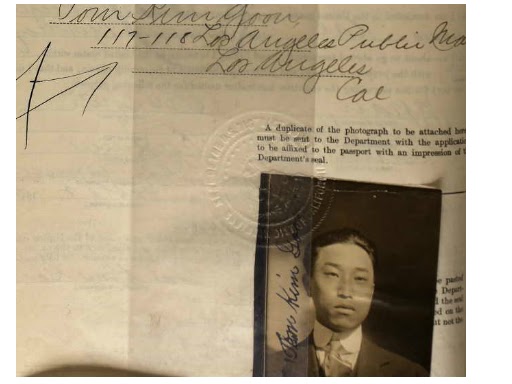 Tom Kim Goon,
117-118 Los Angeles Public Ma
Los Angeles
Cal
A duplicate of the photograph to be attached here
must be sent to the Department with the applicatio
to be affixed to the passport with an impression of t
Department's seal.
Tom Kim Goon
be pasted
Depart-
l the seal
ed on the
not the